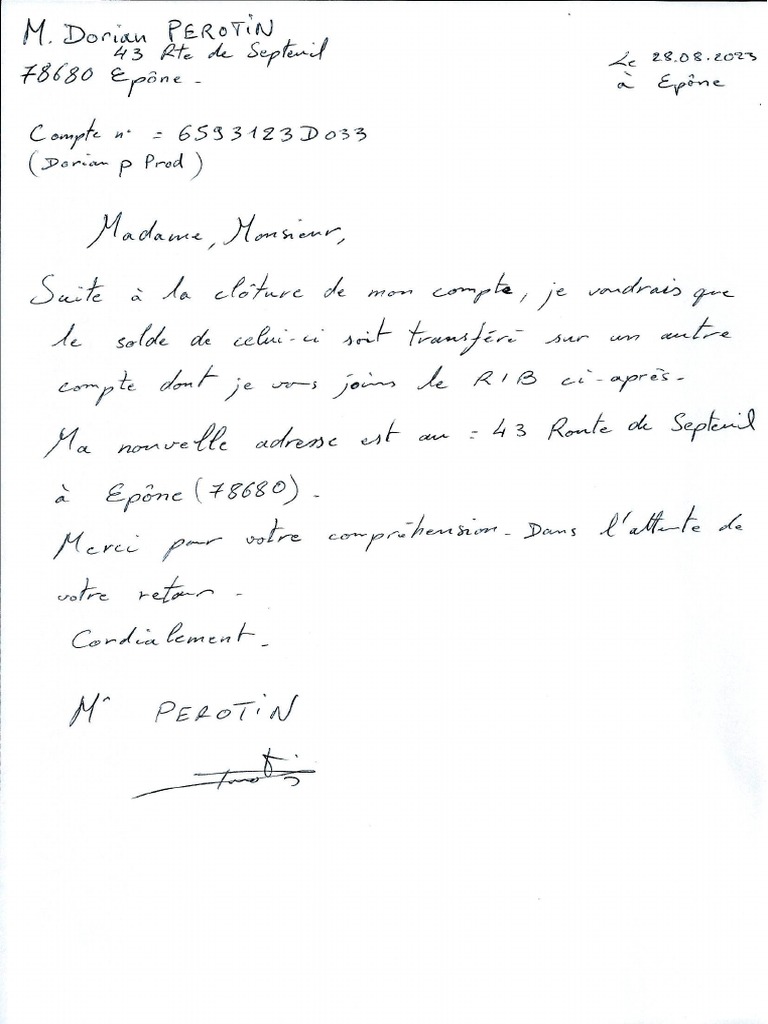 M. Dorian PEROTIN
43 Rte de Septeuil
78680 Epône -
Le 28.08.2023
à Epône
Compte n° = 6593123D033
(Dorian p Prod)
Madame, Monsieur,
Suite à la clôture de mon compte, je voudrais que
le solde de celui-ci soit transféré sur un autre
compte dont je vous joins le RIB ci-après-
Ma nouvelle adresse est au = 43 Route de Septeuil
à Epône (78680) -
Merci pour votre compréhension - Dans l'attente de
votre retour -
Cordialement -
Mr PEROTIN